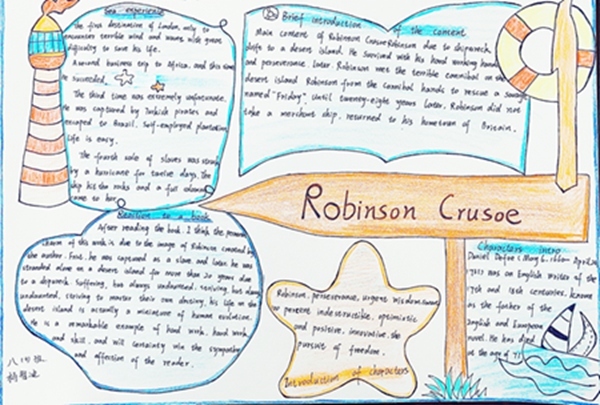 Sea experience
The first destination of London, only to
encounter terrible wind and waves with great
difficulty to save his life.
A second business trip to Africa, and this time
He succeeded
The third time was extremely unfortunate.
He was captured by Turkish pirates and
escaped to Brazil. Self-employed plantation,
life is easy.
The fourth sale of slaves was
by a hurricane for twelve days, the
ship his the rocks and a full
came to
Brief introduction of the content
Main content of Robinson Crusoe Robinson due to shipwreck,
drift to a desert island. He survived with his hard working hand
and perseverance. Later, Robinson was the terrible cannibal on the
desert island Robinson form the cannibal hands to rescue a savage
named "Friday". Until twenty-eight years later. Robinson did not
take a merchant ship. returned to his hometown of Britain.
Robinson Crusoe
Reaction to a book
After reading the book, I think the
charm of this work is due to the image of Robinson created by
the author. First, he was captured as a slave, and later he was
stranded alone on a desert island for more than 20 years due
to a shipwreck. Suffering, but always undaunted, striving, but always
undaunted, striving to master their own destiny, his life on the
desert island is actually a miniature of human evolution.
He is a remarkable example of hard work, hard work,
and skill, and will certainly win the sympathy
and affection of the reader.
Robinson, perseverance, urgent wisdom,
percent indestructible, optimistic
and positive, innovative, the
pursuit of freedom.
Introduction of characters
Characters intro
Daniel Defoe (
1731) was an English writer of the
17th and 18th centuries, known
as the father of the
English and European
novel. He has died
at the age of 71